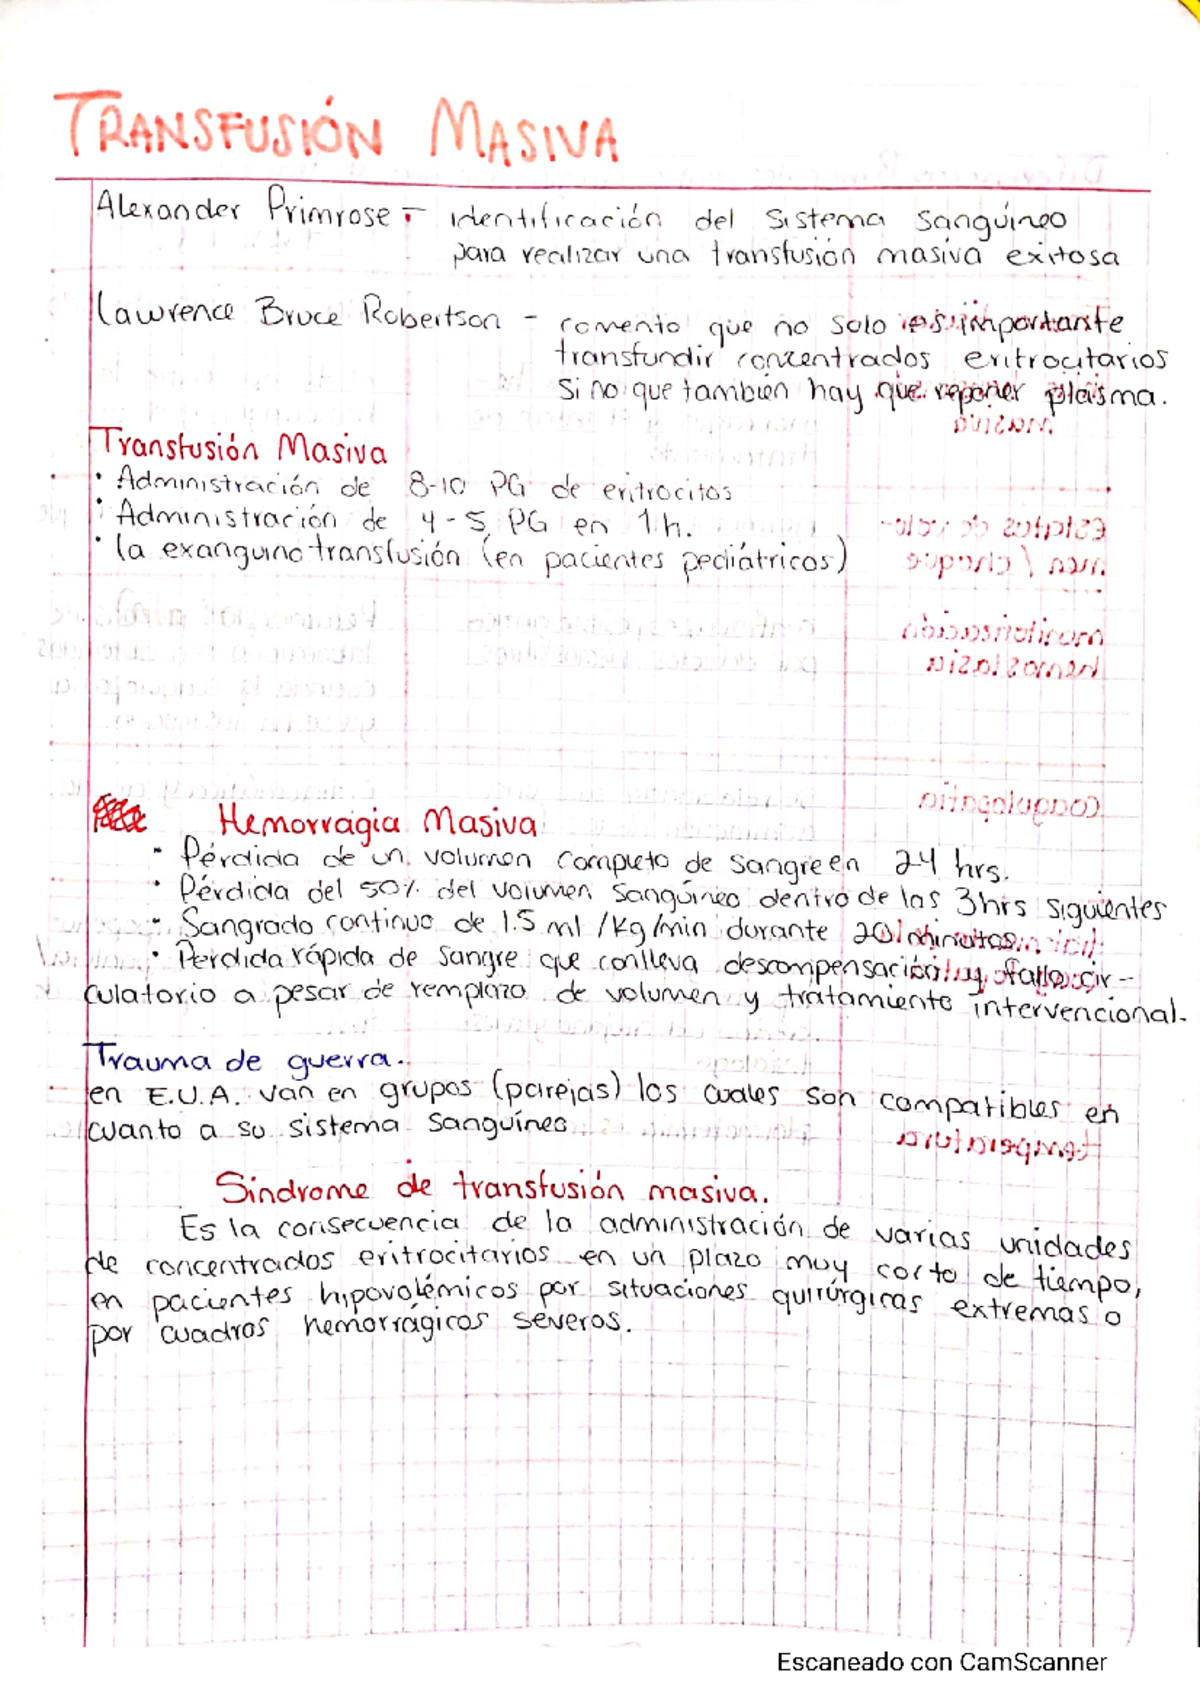 TRANSFUSIÓN MASIVA
Alexander Primrose - identificación del sistema sanguíneo
para realizar una transfusión masiva exitosa
Lawrence Bruce Robertson - comento que no solo es importante
transfundir concentrados eritrocitarios
si no que también hay que reponer plasma.
Transfusión Masiva
· Administración de 8-10 PG de eritrocitos
· Administración de 4-5 PG en 1h.
· la exanguino transfusión (en pacientes pediátricos)
Hemorragia Masiva
· Pérdida de un volumen completo de sangre en 24 hrs.
· Pérdida del 50% del volumen sanguíneo dentro de las 3hrs siguientes
· Sangrado continuo de 1.5 ml/kg/min durante 20 minutos
· Perdida rápida de sangre que conlleva descompensación y fallo cir-
culatorio a pesar de remplazo de volumen y tratamiento intervencional.
Trauma de guerra.
en E.U.A. van en grupos (parejas) los cuales son compatibles en
cuanto a su sistema sanguíneo
Sindrome de transfusión masiva.
Es la consecuencia de la administración de varias unidades
de concentrados eritrocitarios en un plazo muy corto de tiempo,
en pacientes hipovolémicos por situaciones quirúrgicas extremas o
por cuadros hemorrágicos severos.
Escaneado con CamScanner